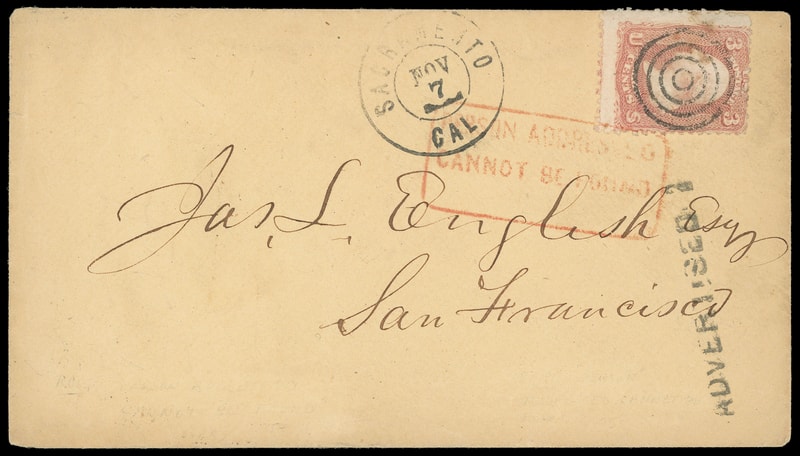 SACRAMENTO
NOV
7
CAL
3 3
U S
CENTS
PERSON ADDRESSED
CANNOT BE FOUND
Jas. L. English Esq
San Francisco
ADVERTISED